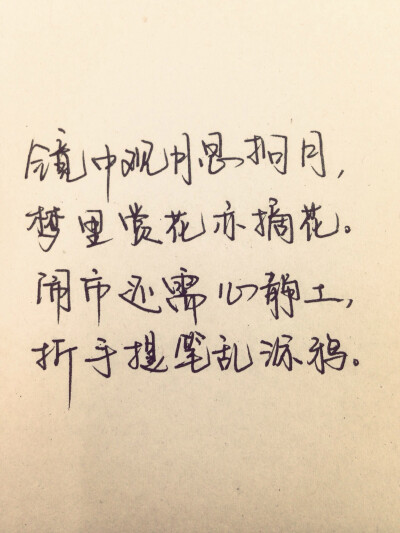 镜中观月思掬月，
梦里赏花亦摘花。
闹市还需心静土，
折手提笔乱涂鸦。